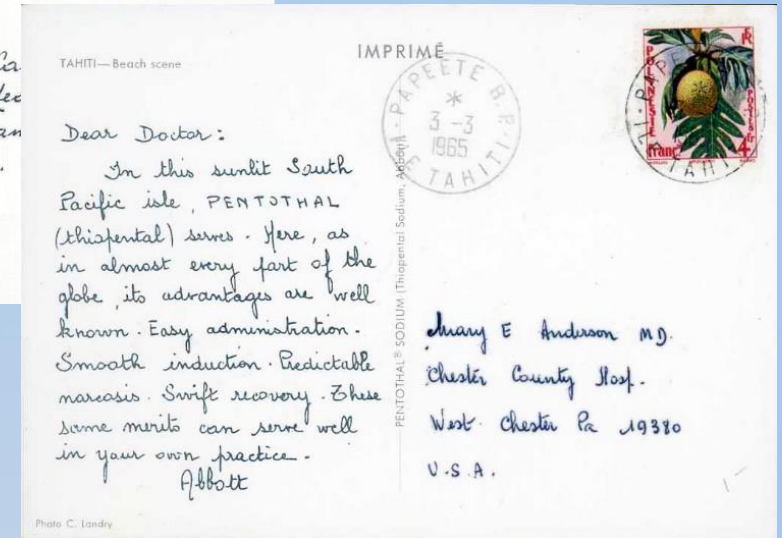 TAHITI—Beach scene
IMPRIMÉ
PAPEETE R.P.
*
3 -3
1965
ILE TAHITI
POLYNESIE
Française
POSTES
4F
Dear Doctor:
In this sunlit South
Pacific isle, PENTOTHAL
(thiopental) serves. Here, as
in almost every part of the
globe, its advantages are well
known. Easy administration.
Smooth induction. Predictable
narcosis. Swift recovery. These
same merits can serve well
in your own practice.
Abbott
PENTOTHAL® SODIUM (Thiopental Sodium, Abbott)
Mary E Anderson MD.
Chester County Hosp.
West Chester Pa 19380
U.S.A.
Photo C. Landry